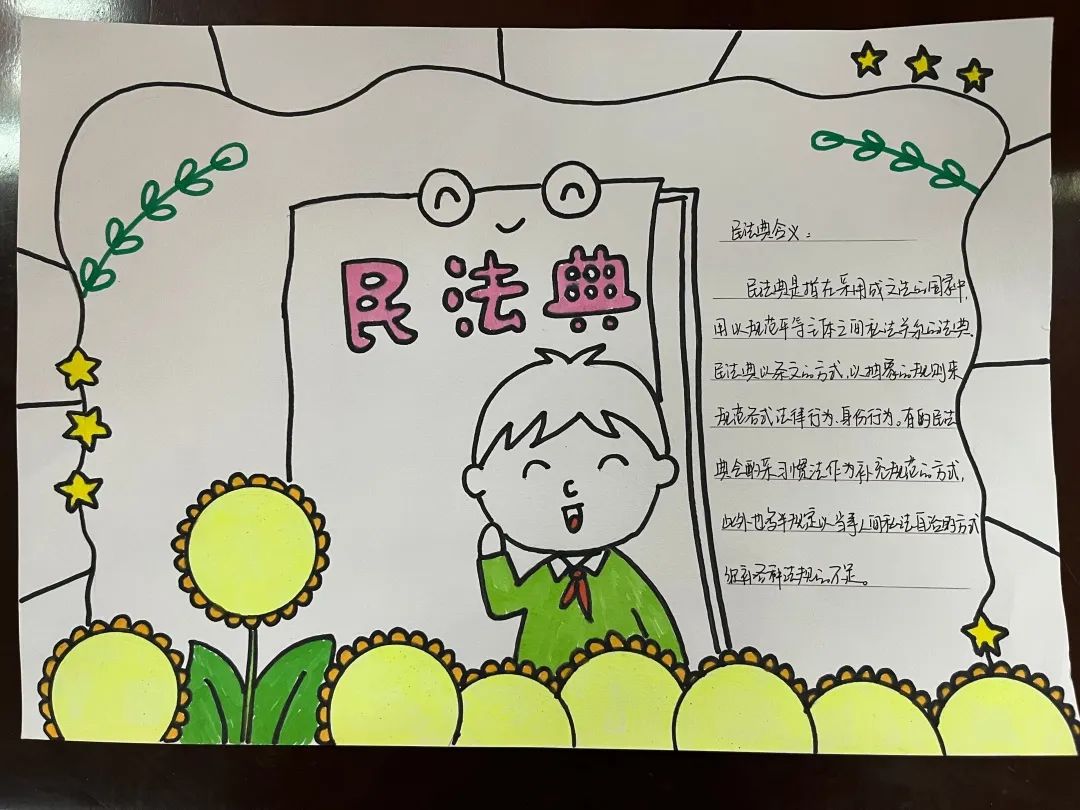 民法典
民法典含义：
民法典是指在采用成文法的国家中,
用以规范平等主体之间私法关系的法典.
民法典以条文的方式,以抽象的规则来
规范各式法律行为、身份行为。有的民法
典会酌采习惯法作为补充规范的方式,
此外也多半规定以当事人间私法自治的方式
弥补各种法规的不足。